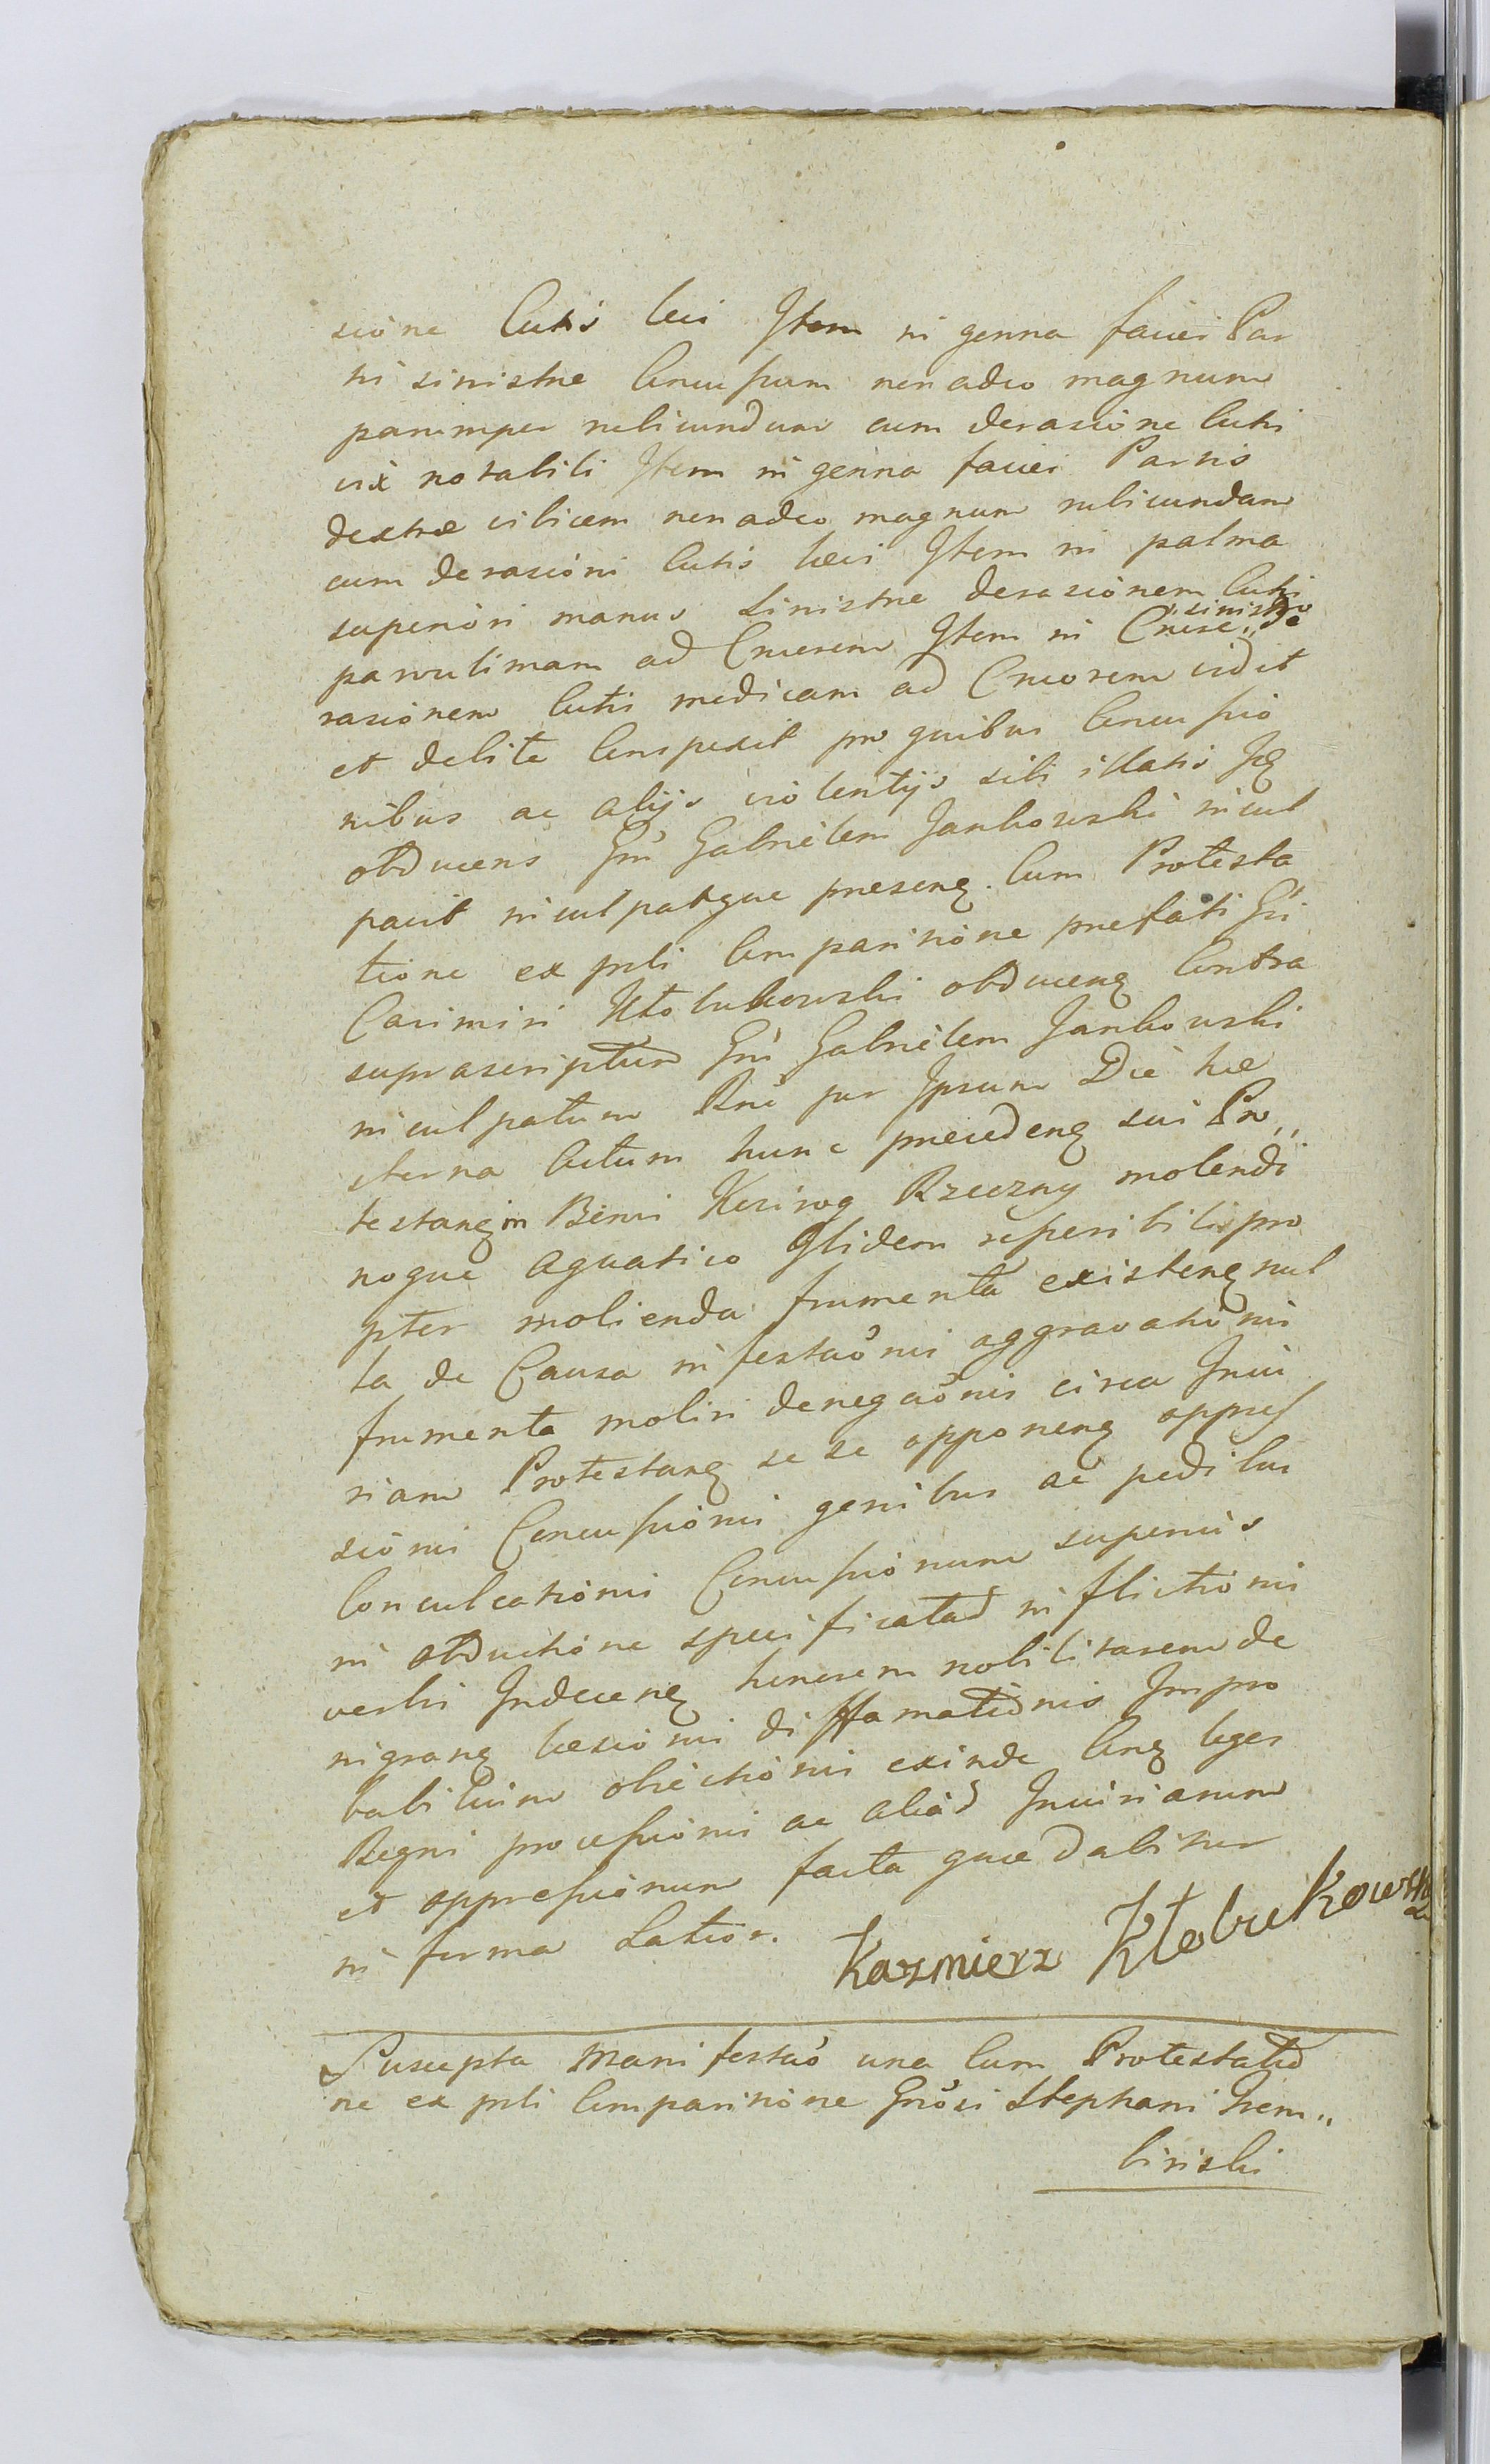 sione Cutis levi Item in genna faciei Par
tis sinistrae Concussum non adeo magnum
parumper rubicundum cum derasione Cutis
vix notabili Item in genna faciei Partis
dextrae vibicem non adeo magnum rubicundam
cum derasioni Cutis levi Item in palma
superiori manus Sinistrae derasionem Cutis
parvulimam ad Cruorem Item in Crure sinistro de
rasionem Cutis modicam ad Cruorem vidit
et debite Conspexit pro quibus Concussio
nibus ac alijs violentijs sibi illatis
obducens Gnu Gabrielem Jankowski incul
pavit inculpatque praesenq. Cum Protesta
tione ex prsti Comparitione praefati Gsi
Casimiri Kłobukowski obducenq Contra
suprascriptum Gnu Gabrielem Jankowski
inculpatum Rne per Ipsum Die he
sterna Actum hunc praecedenq sui Pro,,
testanq in Bonis Kozirog Rzeczny molendi
noque aquatico Ibidem reperibili pro
pter molienda frumenta existenq nul
la de Causa infestaonis aggravationis
frumenta moliri denegaonis circa Iniu
riam Protestanq se se opponenq oppres
sionis Concussionis genibus ac pedibus
Conculcationis Concussionum superius
in obductione specificatad inflictionis
verbis Indecenq honorem nobilitarem de
nigranq laesionis diffamationis Impro
babilium obiectionis exinde Conq leges
Regni processionis ac aliad Iniuriarum
et oppressionum facta quae dabitur
in forma Latior. Kazmierz Kłobukowski
Suscepta Manifestao una Cum Protestatio
ne ex prsti Comparitione Gnosi Stephani Trem,,
binski